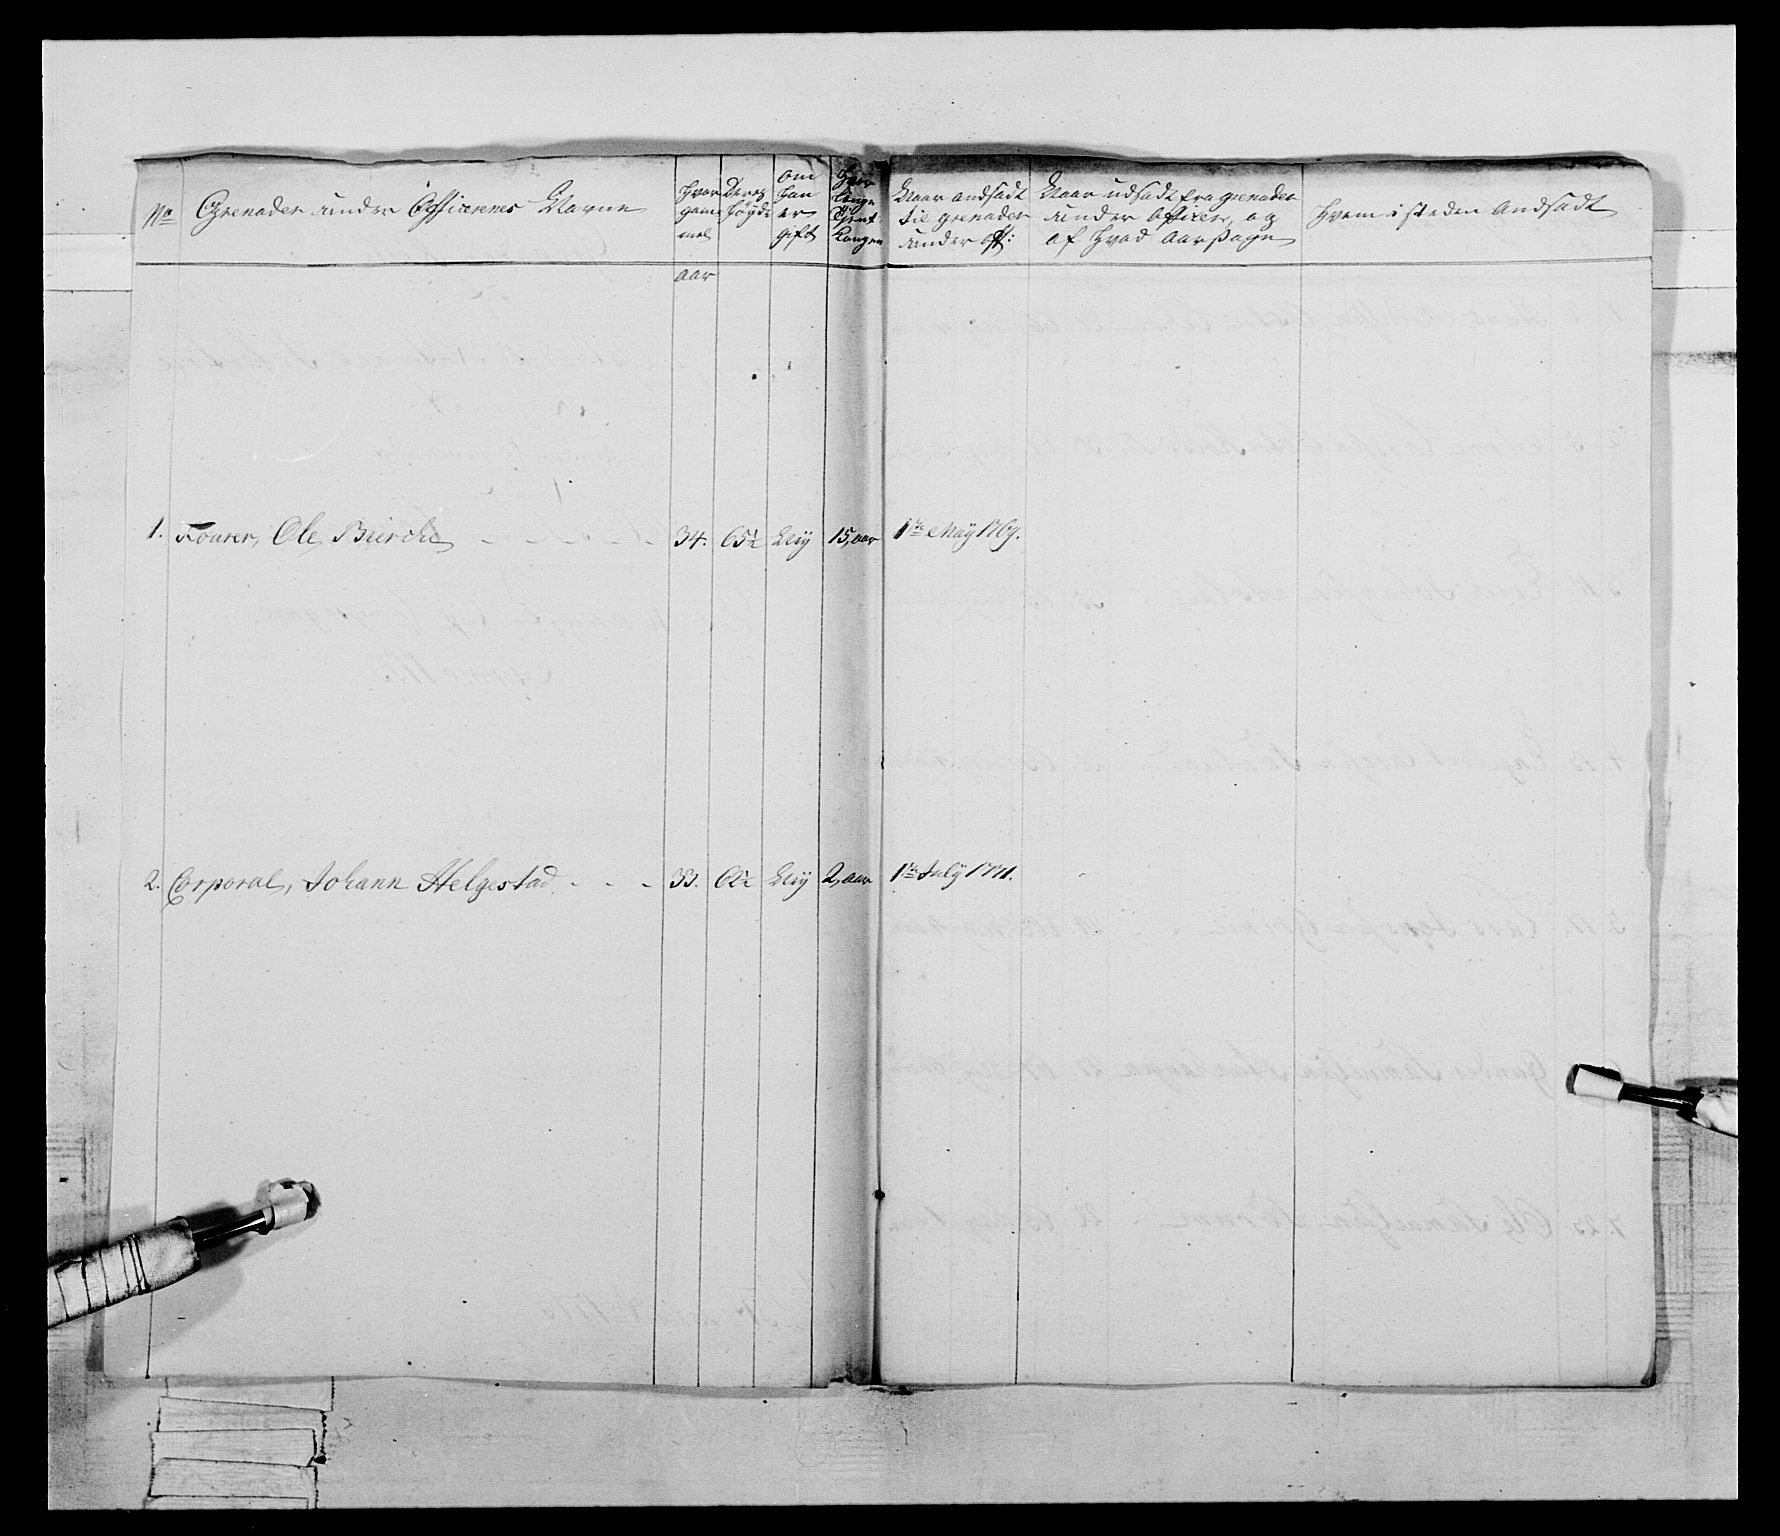 No
Grenader under Officerenes Navne
Hvor
gam
mel
aar
Deres
Høyde
Om
han
er
gift
Hvor
Længe
tient
Kongen
Naar andsadt
til grenader
under off:
Naar udsadt fra grenader
under officer, og
af hvad aarsage
Hvem i steden Andsadt
1. Fourer, Ole Bierche - - - - 34. 65½ Nej 15, aar 1te May 1769.
2. Corporal, Johann Helgestad - - - 33. 62½ Nej 2, aar 1te July 1771.